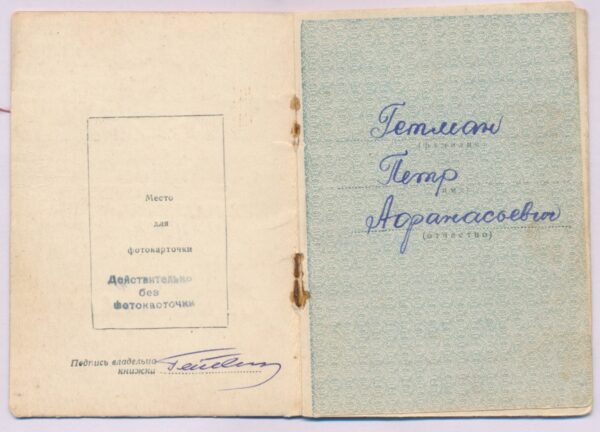 Место
для
фотокарточки
Действительно
без
фотокарточки
Подпись владельца
книжки
Гетман
(фамилия)
Петр
(имя)
Афанасьевич
(отчество)